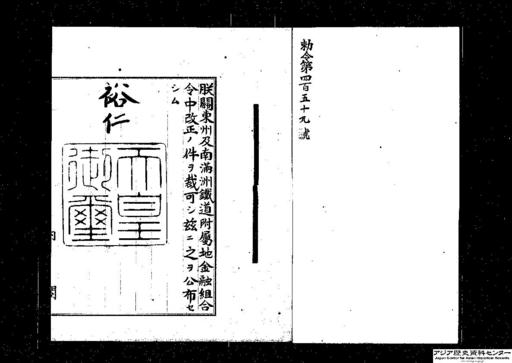 勅令第四百五十九號
朕關東州及南滿洲鐵道附屬地金融組合
令中改正ノ件ヲ裁可シ玆ニ之ヲ公布セ
シム
裕仁
天皇
御璽
内
閣
アジア歴史資料センター
Japan Center for Asian Historical Records